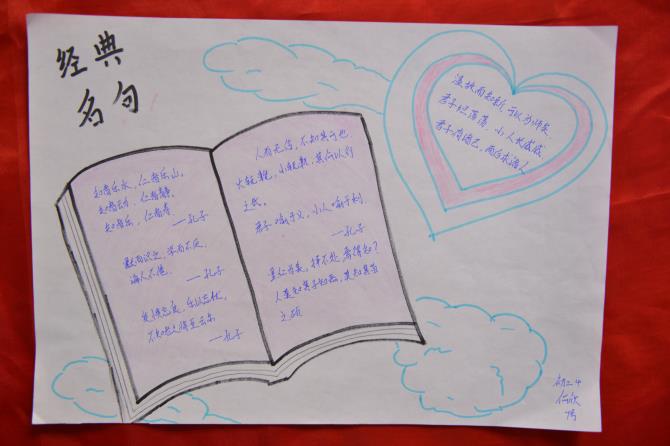 经典
名句
知者乐水，仁者乐山，
知者动，仁者静，
知者乐，仁者寿。
——孔子
默而识之，学而不厌，
诲人不倦。
——孔子
发愤忘食，乐以忘忧，
不知老之将至云尔
——孔子
人而无信，不知其可也
大车无輗，小车无軏，其何以行
之哉。
君子喻于义，小人喻于利
——孔子
里仁为美，择不处
温故而知新，可以为师矣
君子坦荡荡，小人长戚戚
君子求诸己，小人求诸人
初二4